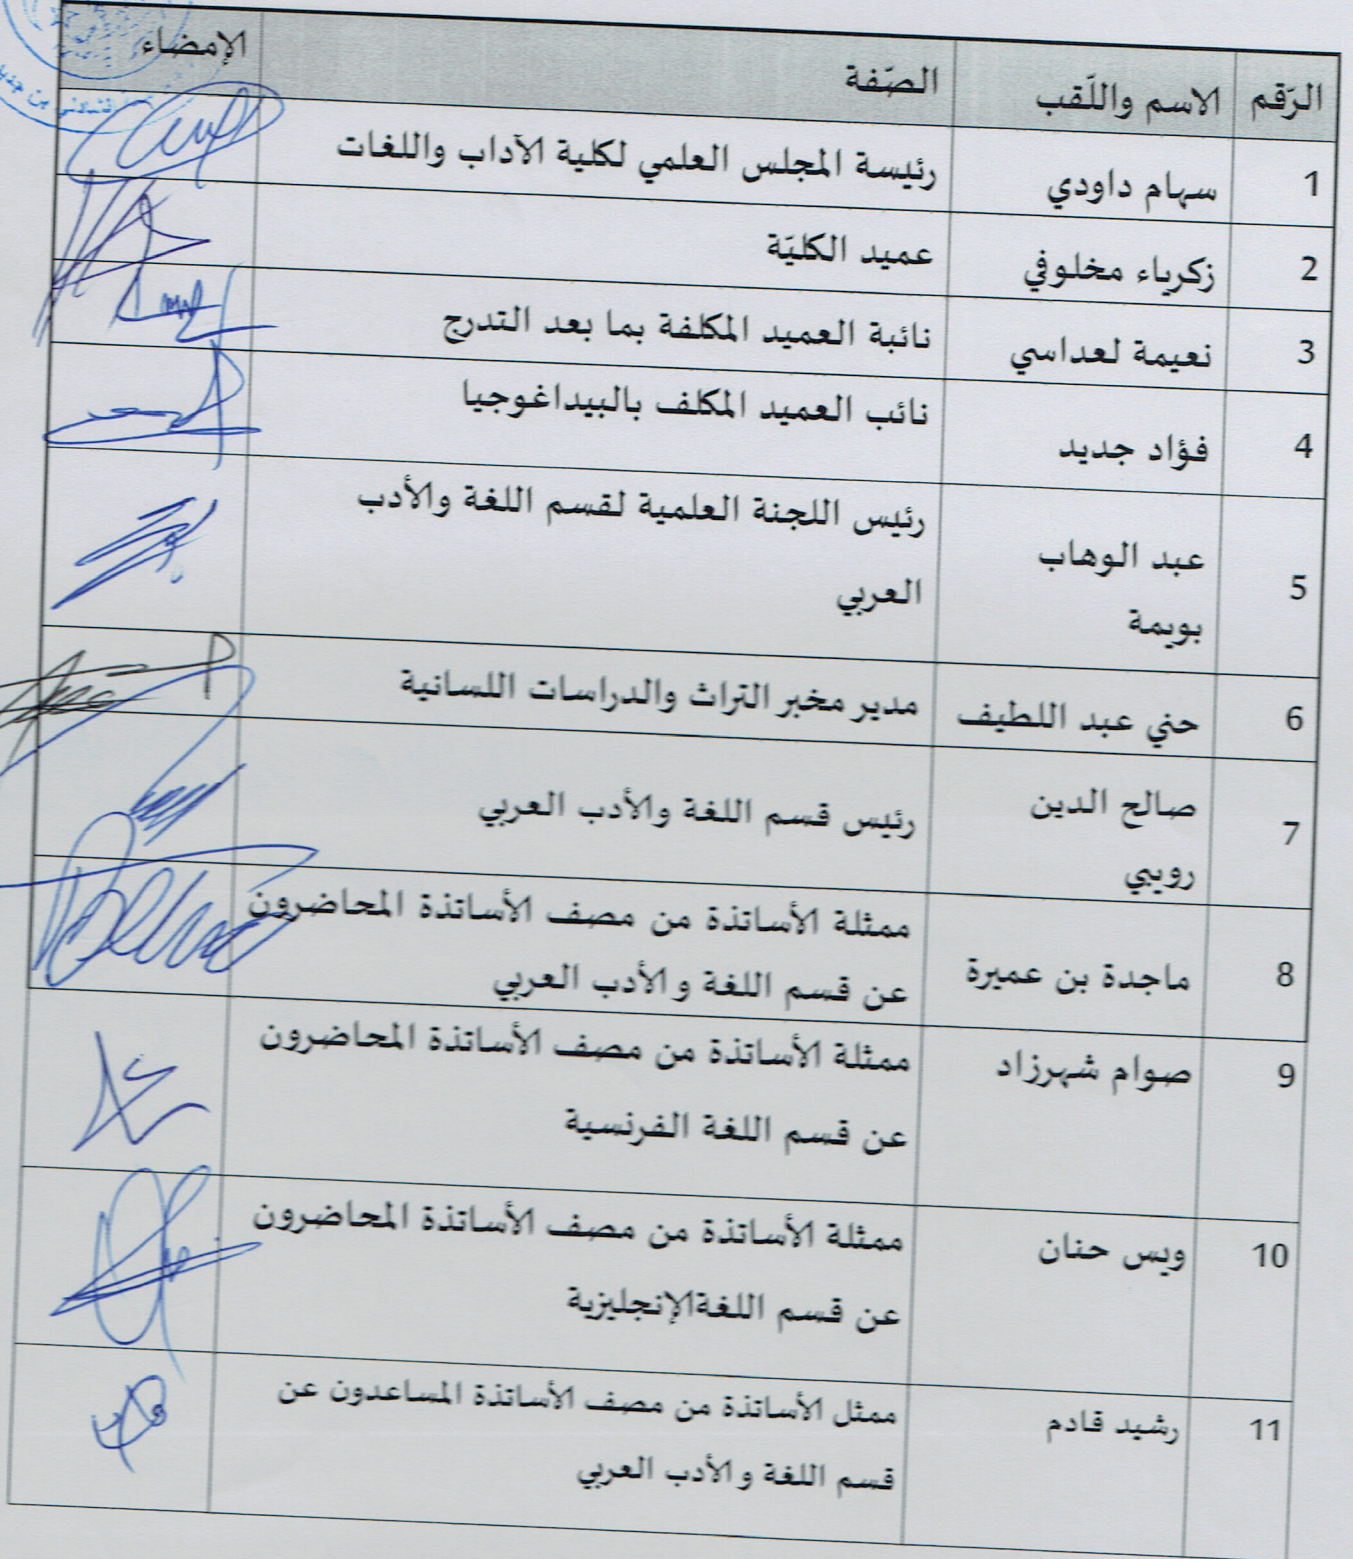 الرّقم الاسم واللّقب الصّفة الإمضاء
1 سهام داودي رئيسة المجلس العلمي لكلية الآداب واللغات
2 زكرياء مخلوفي عميد الكليّة
3 نعيمة لعداسي نائبة العميد المكلفة بما بعد التدرج
4 فؤاد جديد نائب العميد المكلف بالبيداغوجيا
5 عبد الوهاب رئيس اللجنة العلمية لقسم اللغة والأدب
بويمة العربي
6 حني عبد اللطيف مدير مخبر التراث والدراسات اللسانية
7 صالح الدين رئيس قسم اللغة والأدب العربي
رويبي
8 ماجدة بن عميرة ممثلة الأساتذة من مصف الأساتذة المحاضرون
عن قسم اللغة والأدب العربي
9 صوام شهرزاد ممثلة الأساتذة من مصف الأساتذة المحاضرون
عن قسم اللغة الفرنسية
10 ويس حنان ممثلة الأساتذة من مصف الأساتذة المحاضرون
عن قسم اللغةالإنجليزية
11 رشيد قادم ممثل الأساتذة من مصف الأساتذة المساعدون عن
قسم اللغة والأدب العربي